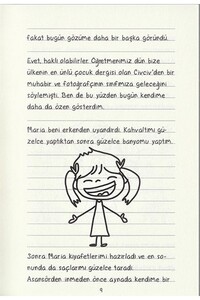 fakat bugün gözüme daha bir başka göründü.
Evet, haklı olabilirler. Öğretmenimiz dün bize
ülkenin en ünlü çocuk dergisi olan Civciv'den bir
muhabir ve fotoğrafçının sınıfımıza geleceğini
söylemişti. Ben de bu yüzden bugün kendime
daha da özen gösterdim.
Maria beni erkenden uyandırdı. Kahvaltımı gü-
zelce yaptıktan sonra güzelce banyomu yaptım.
Sonra Maria kıyafetlerimi hazırladı ve en so-
nunda da saçlarımı güzelce taradı.
Asansörden inmeden önce aynada kendime bir